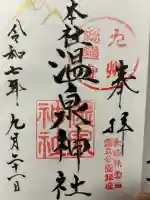 奉拝
九州
本社 温泉神社
令和七年 九月二十一日